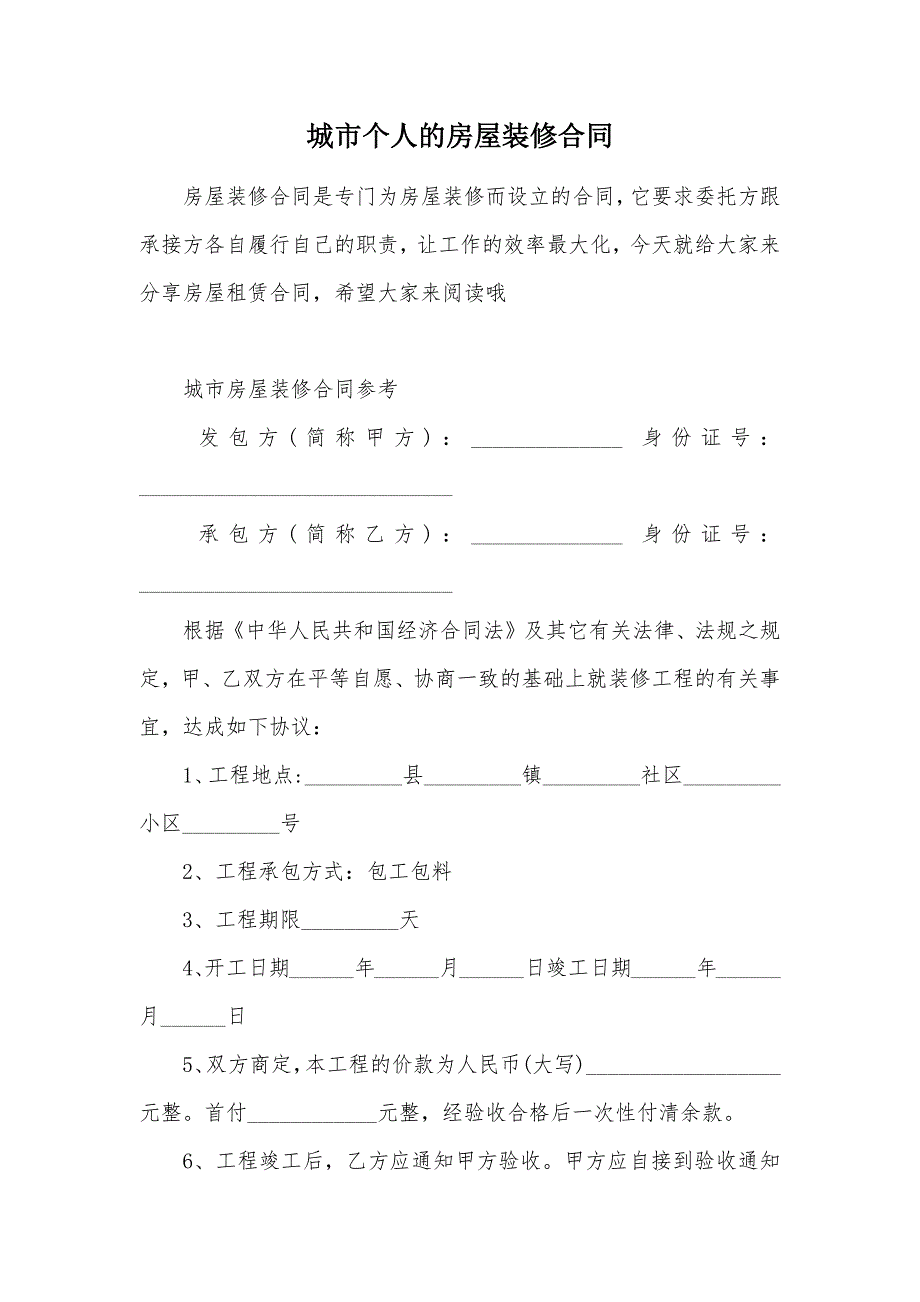 城市个人的房屋装修合同
房屋装修合同是专门为房屋装修而设立的合同，它要求委托方跟
承接方各自履行自己的职责，让工作的效率最大化，今天就给大家来
分享房屋租赁合同，希望大家来阅读哦
城市房屋装修合同参考
发包方(简称甲方)：______________ 身份证号：
_____________________________
承包方(简称乙方)：______________ 身份证号：
_____________________________
根据《中华人民共和国经济合同法》及其它有关法律、法规之规
定，甲、乙双方在平等自愿、协商一致的基础上就装修工程的有关事
宜，达成如下协议：
1、工程地点:_________县_________镇_________社区_________
小区_________号
2、工程承包方式：包工包料
3、工程期限_________天
4、开工日期______年______月______日竣工日期______年______
月______日
5、双方商定，本工程的价款为人民币(大写)__________________
元整。首付____________元整，经验收合格后一次性付清余款。
6、工程竣工后，乙方应通知甲方验收。甲方应自接到验收通知